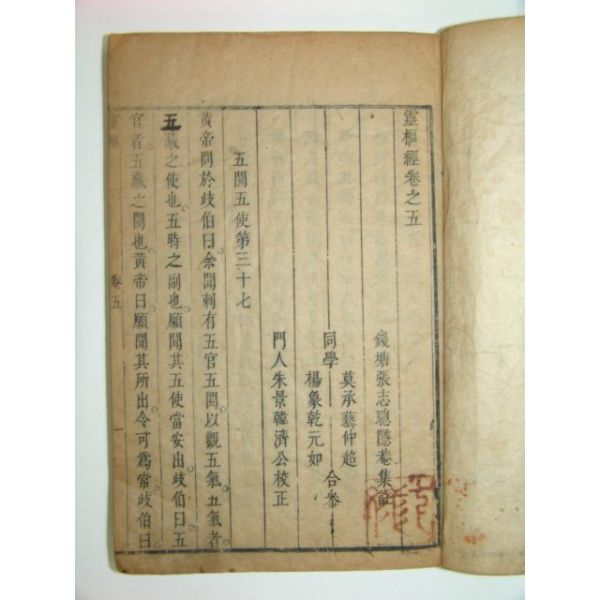 靈樞經卷之五
錢塘張志聰隱菴集註
莫承藝仲超
同學 合參
楊象乾元如
門人朱景韓濟公校正
五閱五使第三十七
黃帝問於歧伯曰余聞刺有五官五閱以觀五氣五氣者
五藏之使也五時之副也願聞其五使當安出歧伯曰五
官者五藏之閱也黃帝曰願聞其所出令可爲常歧伯曰
卷五